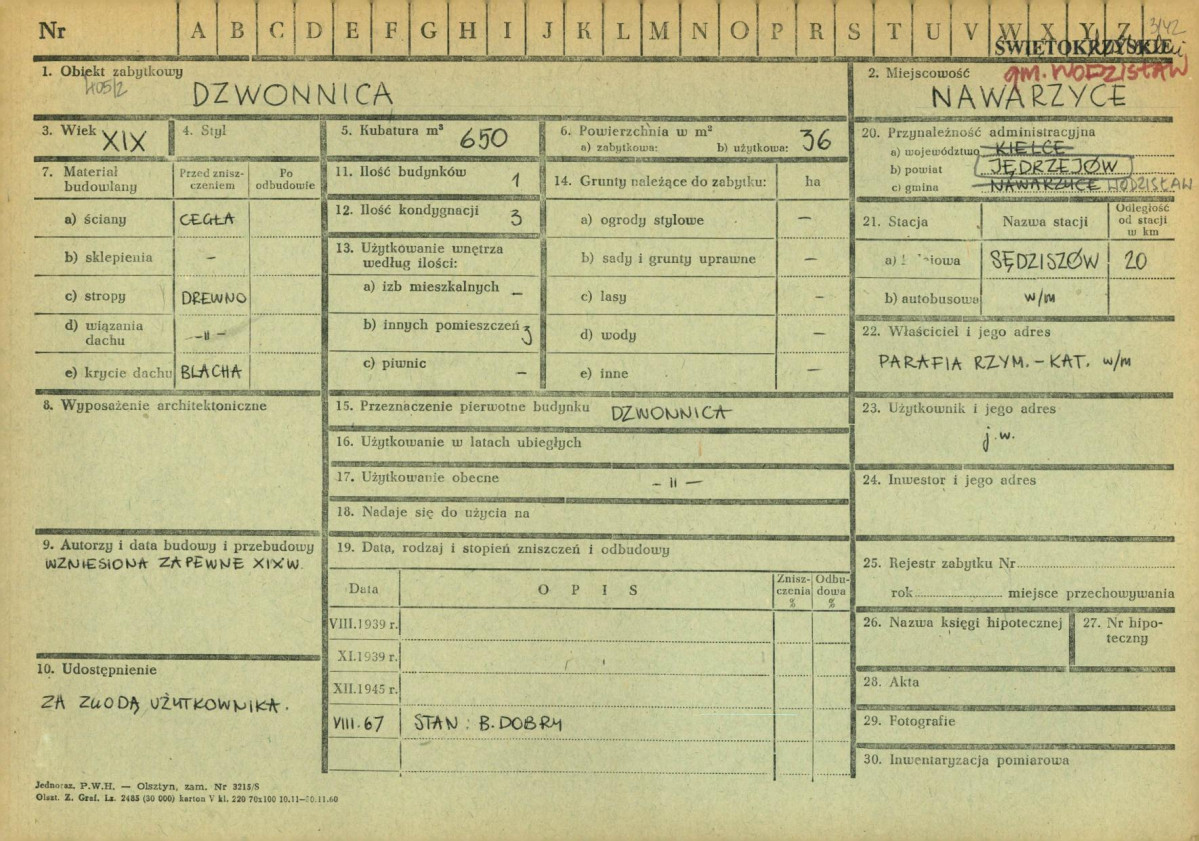 Nr A B C D E F G H I J K L M N O P R S T U V W X Y Z 3/42
ŚWIĘTOKRZYSKIE
1. Obiekt zabytkowy
DZWONNICA
2. Miejscowość
gm. WODZISŁAW
NAWARZYCE
3. Wiek XIX
4. Styl
5. Kubatura m³ 650
6. Powierzchnia w m²
a) zabytkowa: b) użytkowa: 36
7. Materiał budowlany
Przed zniszczeniem
Po odbudowie
a) ściany CEGŁA
b) sklepienia –
c) stropy DREWNO
d) wiązania dachu –"–
e) krycie dachu BLACHA
11. Ilość budynków 1
12. Ilość kondygnacji 3
13. Użytkowanie wnętrza
według ilości:
a) izb mieszkalnych –
b) innych pomieszczeń 3
c) piwnic –
14. Grunty należące do zabytku: ha
a) ogrody stylowe –
b) sady i grunty uprawne –
c) lasy –
d) wody –
e) inne –
20. Przynależność administracyjna
a) województwo KIELCE
b) powiat JĘDRZEJÓW
c) gmina NAWARZYCE WODZISŁAW
21. Stacja
Nazwa stacji
Odległość od stacji w km
SĘDZISZÓW 20
b) autobusowa w/m
22. Właściciel i jego adres
PARAFIA RZYM.-KAT. w/m
8. Wyposażenie architektoniczne
15. Przeznaczenie pierwotne budynku DZWONNICA
16. Użytkowanie w latach ubiegłych
17. Użytkowanie obecne –"–
18. Nadaje się do użycia na
23. Użytkownik i jego adres
j.w.
24. Inwestor i jego adres
9. Autorzy i data budowy i przebudowy
WZNIESIONA ZAPEWNE XIX W.
10. Udostępnienie
ZA ZGODĄ UŻYTKOWNIKA.
19. Data, rodzaj i stopień zniszczeń i odbudowy
Data
O P I S
Zniszczenia %
Odbudowa %
VIII.1939 r.
XI.1939 r.
XII.1945 r.
VIII.67 STAN: B. DOBRY
25. Rejestr zabytku Nr
rok miejsce przechowywania
26. Nazwa księgi hipotecznej
27. Nr hipoteczny
28. Akta
29. Fotografie
30. Inwentaryzacja pomiarowa
Jednoraz. P.W.H. — Olsztyn, zam. Nr 3215/S
Olszt. Z. Graf. Lz. 2485 (30 000) karton V kl. 220 70x100 10.11—30.11.60